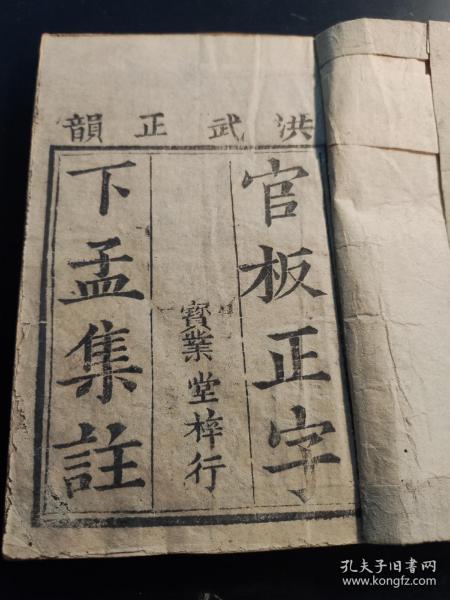 洪武正韻
官板正字
寳業堂梓行
下孟集註
孔夫子旧书网
www.kongfz.com